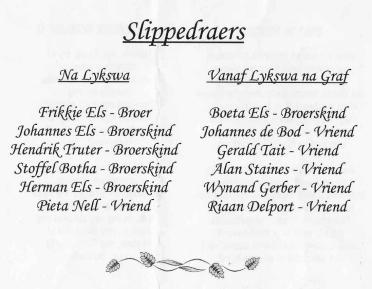 Slippedraers
Na Lykswa
Frikkie Els - Broer
Johannes Els - Broerskind
Hendrik Truter - Broerskind
Stoffel Botha - Broerskind
Herman Els - Broerskind
Pieta Nell - Vriend
Vanaf Lykswa na Graf
Boeta Els - Broerskind
Johannes de Bod - Vriend
Gerald Tait - Vriend
Alan Staines - Vriend
Wynand Gerber - Vriend
Riaan Delport - Vriend